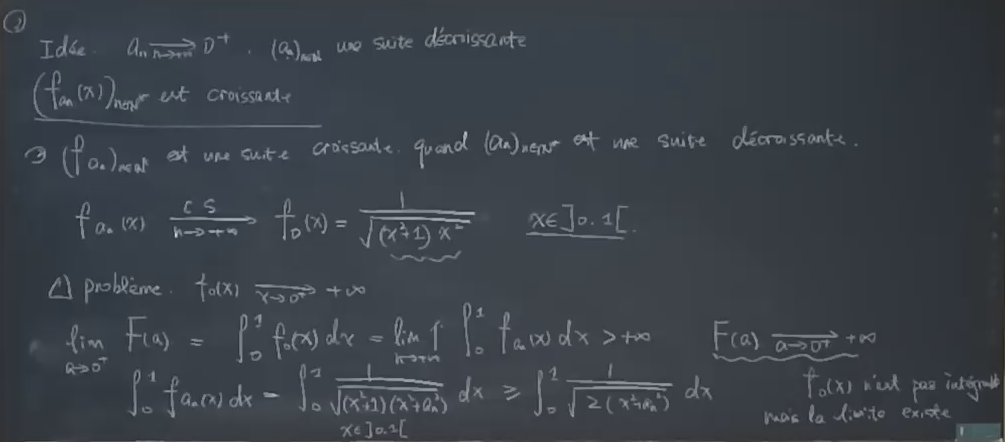 ②
Idée. aₙ →(n→+∞) 0⁺. (aₙ)ₙ∈ℕ* une suite décroissante
(f_{aₙ}(x))ₙ∈ℕ* est croissante
③ (f_{aₙ})ₙ∈ℕ* est une suite croissante. quand (aₙ)ₙ∈ℕ* est une suite décroissante.
f_{aₙ}(x) →(CS, n→+∞) f₀(x) = 1/√((x²+1) x²) x∈]0.1[.
⚠ problème. f₀(x) →(x→0⁺) +∞
lim_{a→0⁺} F(a) = ∫₀¹ f₀(x) dx = lim_{n→+∞} ↑ ∫₀¹ f_{aₙ}(x) dx > +∞ F(a) →(a→0⁺) +∞
∫₀¹ f_{aₙ}(x) dx = ∫₀¹ 1/√((x²+1)(x²+aₙ²)) dx ≥ ∫₀¹ 1/√(2(x²+aₙ²)) dx
x∈]0.1[
f₀(x) n'est pas intégrable
mais la limite existe